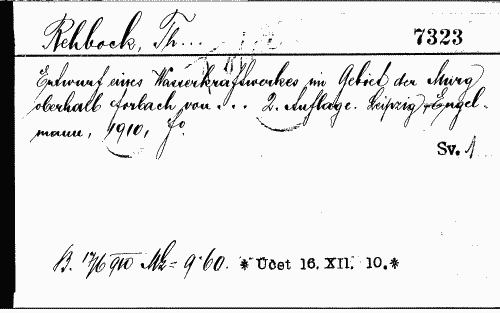 Rehbock, Th... 7323
Entwurf eines Wasserkraftwerkes im Gebiet der Murg
oberhalb Forbach von ... 2. Auflage. Leipzig, Engel-
mann, 1910, fo.
Sv. 1
B. 17/6 910 Mk = 9·60. * Účet 16. XII. 10. *